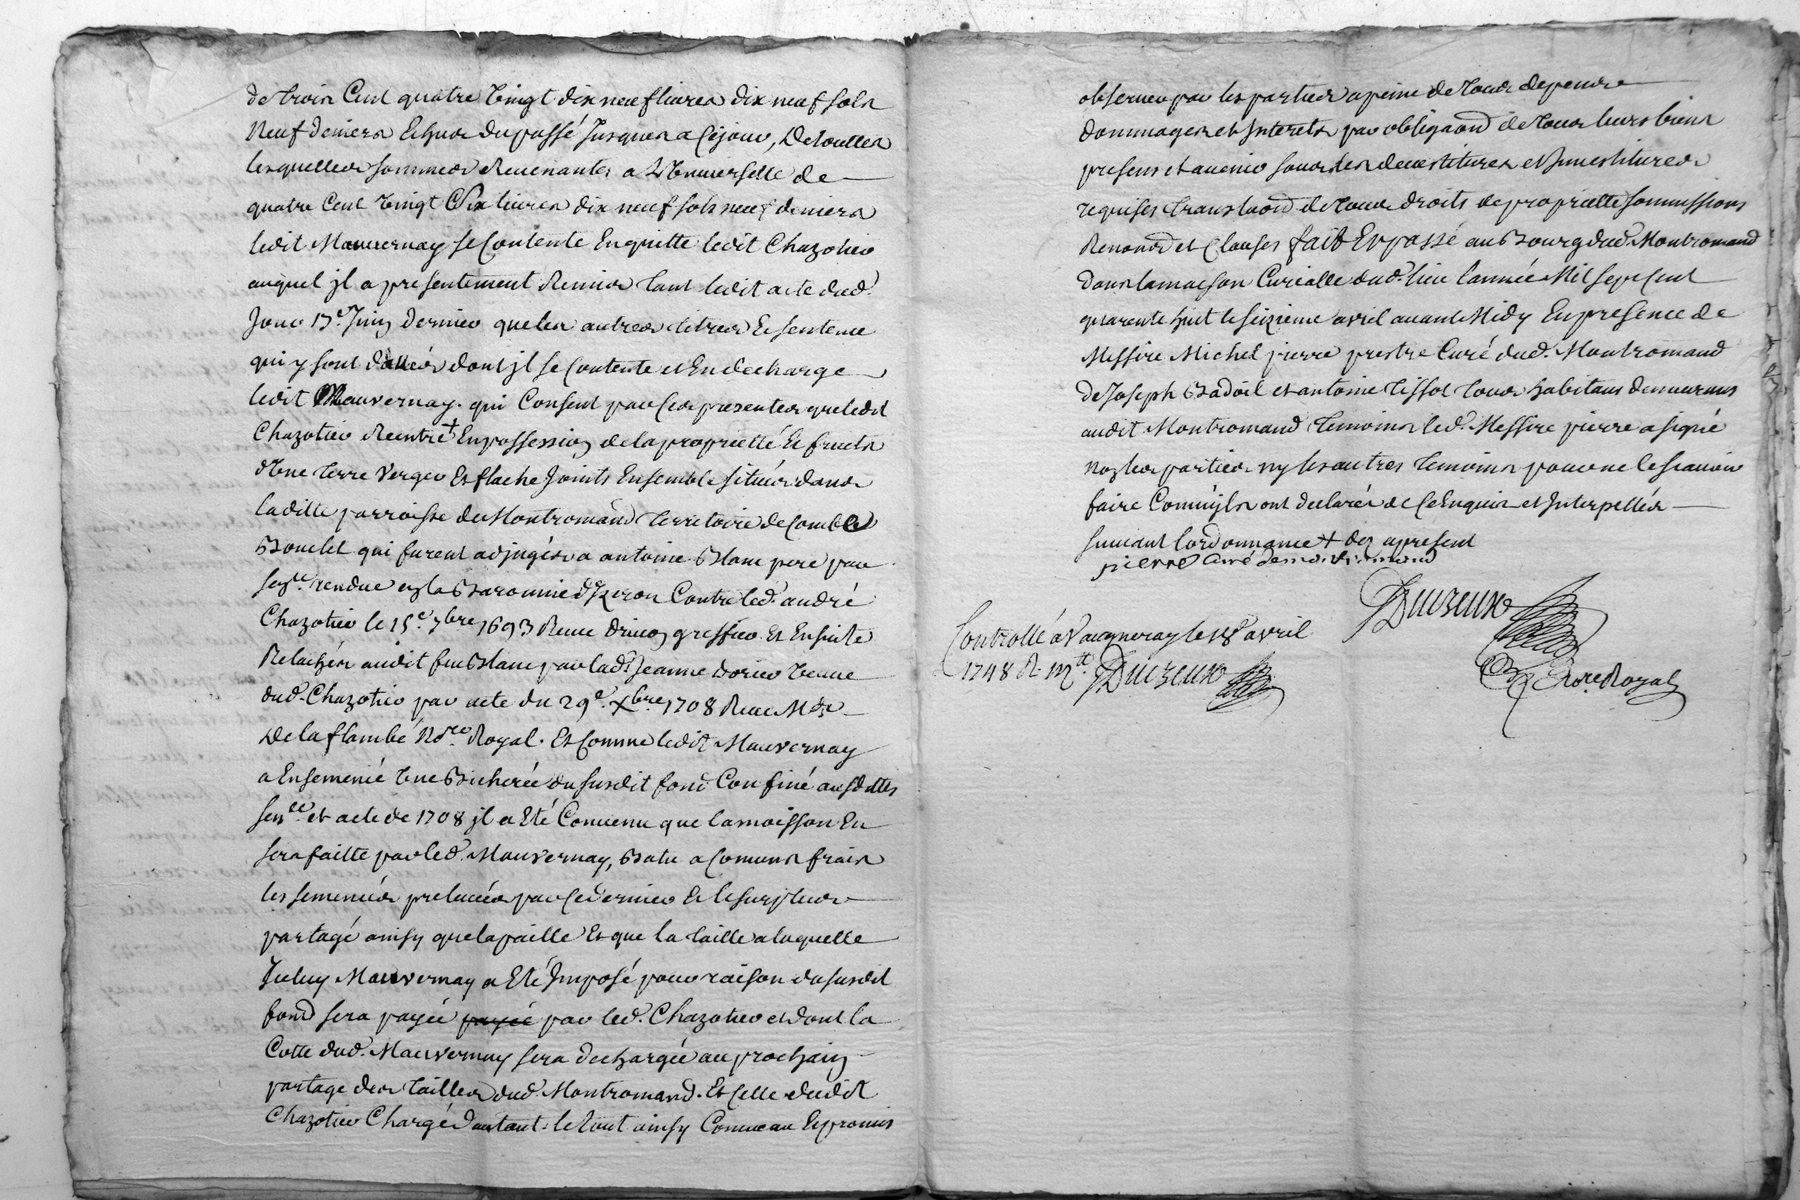 de trois Cent quatre vingt dix neuf livres dix neuf sols
Neuf deniers Echus du passé Jusques a Cejour, De touttes
lesquelles sommes Revenantes a L'Vniverselle de
quatre Cent vingt Six livres dix neuf sols neuf deniers
ledit Mauvernay se Contente En quitte ledit Chazotier
auquel jl a presentement Remis tant ledit acte dud.
Jour 13e. Juin dernier que les autres titres Et sentence
qui y sont dattés dont jl se Contente et En decharge
ledit Mauvernay. qui Consent par Ces presentes que ledit
Chazotier Rentre + En possession de la proprietté Et fruits
d'Vne terre Verger Et flache Joints Ensemble situés dans
laditte parroisse de Montromand territoire de Combe
Bouclet qui furent adjugés a antoine Blanc pere par
senc.e rendue en la Baronnie d'Izeron Contre led. andré
Chazotier le 15e. 7bre 1693 Reçue greffier. Et Ensuite
Relachés audit feu Blanc par lad. Jeanne dorier veuve
dud. Chazotier par acte du 29e. Xbre 1708 Reçue Me
De la flambé No.re Royal. Et Comme ledit Mauvernay
a Ensemencé Vne Bicherée du susdit fond Confiné ausdittes
sen.ce et acte de 1708 jl a Eté Convenu que la moisson En
sera faitte par led. Mauvernay, Batu a Comuns frais
les semences prelevées par Ce dernier Et le surplus
partagé ainsy que la paille Et que la taille a laquelle
Jceluy Mauvernay a Eté Jmposé pour raison du susdit
fond sera payée payée par led. Chazotier et dont la
Cotte dud. Mauvernay sera dechargée au prochain
partage des tailles dud. Montromand. Et Celle dudit
Chazotier Chargé d'autant. le tout ainsy Convenu Et promis
observer par les parties a peine de tous depens
dommages et Interets par obliga.on de tous leurs biens
presens et avenir sous les devestitures et Jnvestitures
requises transla.on de tous droits de proprietté soumissions
Renon.on et Clauses fait Et passé au Bourg dud. Montromand
dans la maison Curialle dud. lieu l'année Mil sept Cent
quarente huit le seizieme avril avant Midy En presence de
Messire Michel pierre prestre Curé dud. Montromand
de Joseph Badoil et antoine tissot tous habitans demeurans
audit Montromand temoins led. Messire pierre a signé
Non les parties ny les autres temoins pour ne le scavoir
faire Comm'jls ont declarés de Ce Enquis et Interpellés
suivant l'ordonnance + dez apresent
pierre Curé de montromand
Duczeux
No.re Royal
Controllé a Vaugneray le 18e avril
1748 R. Duczeux